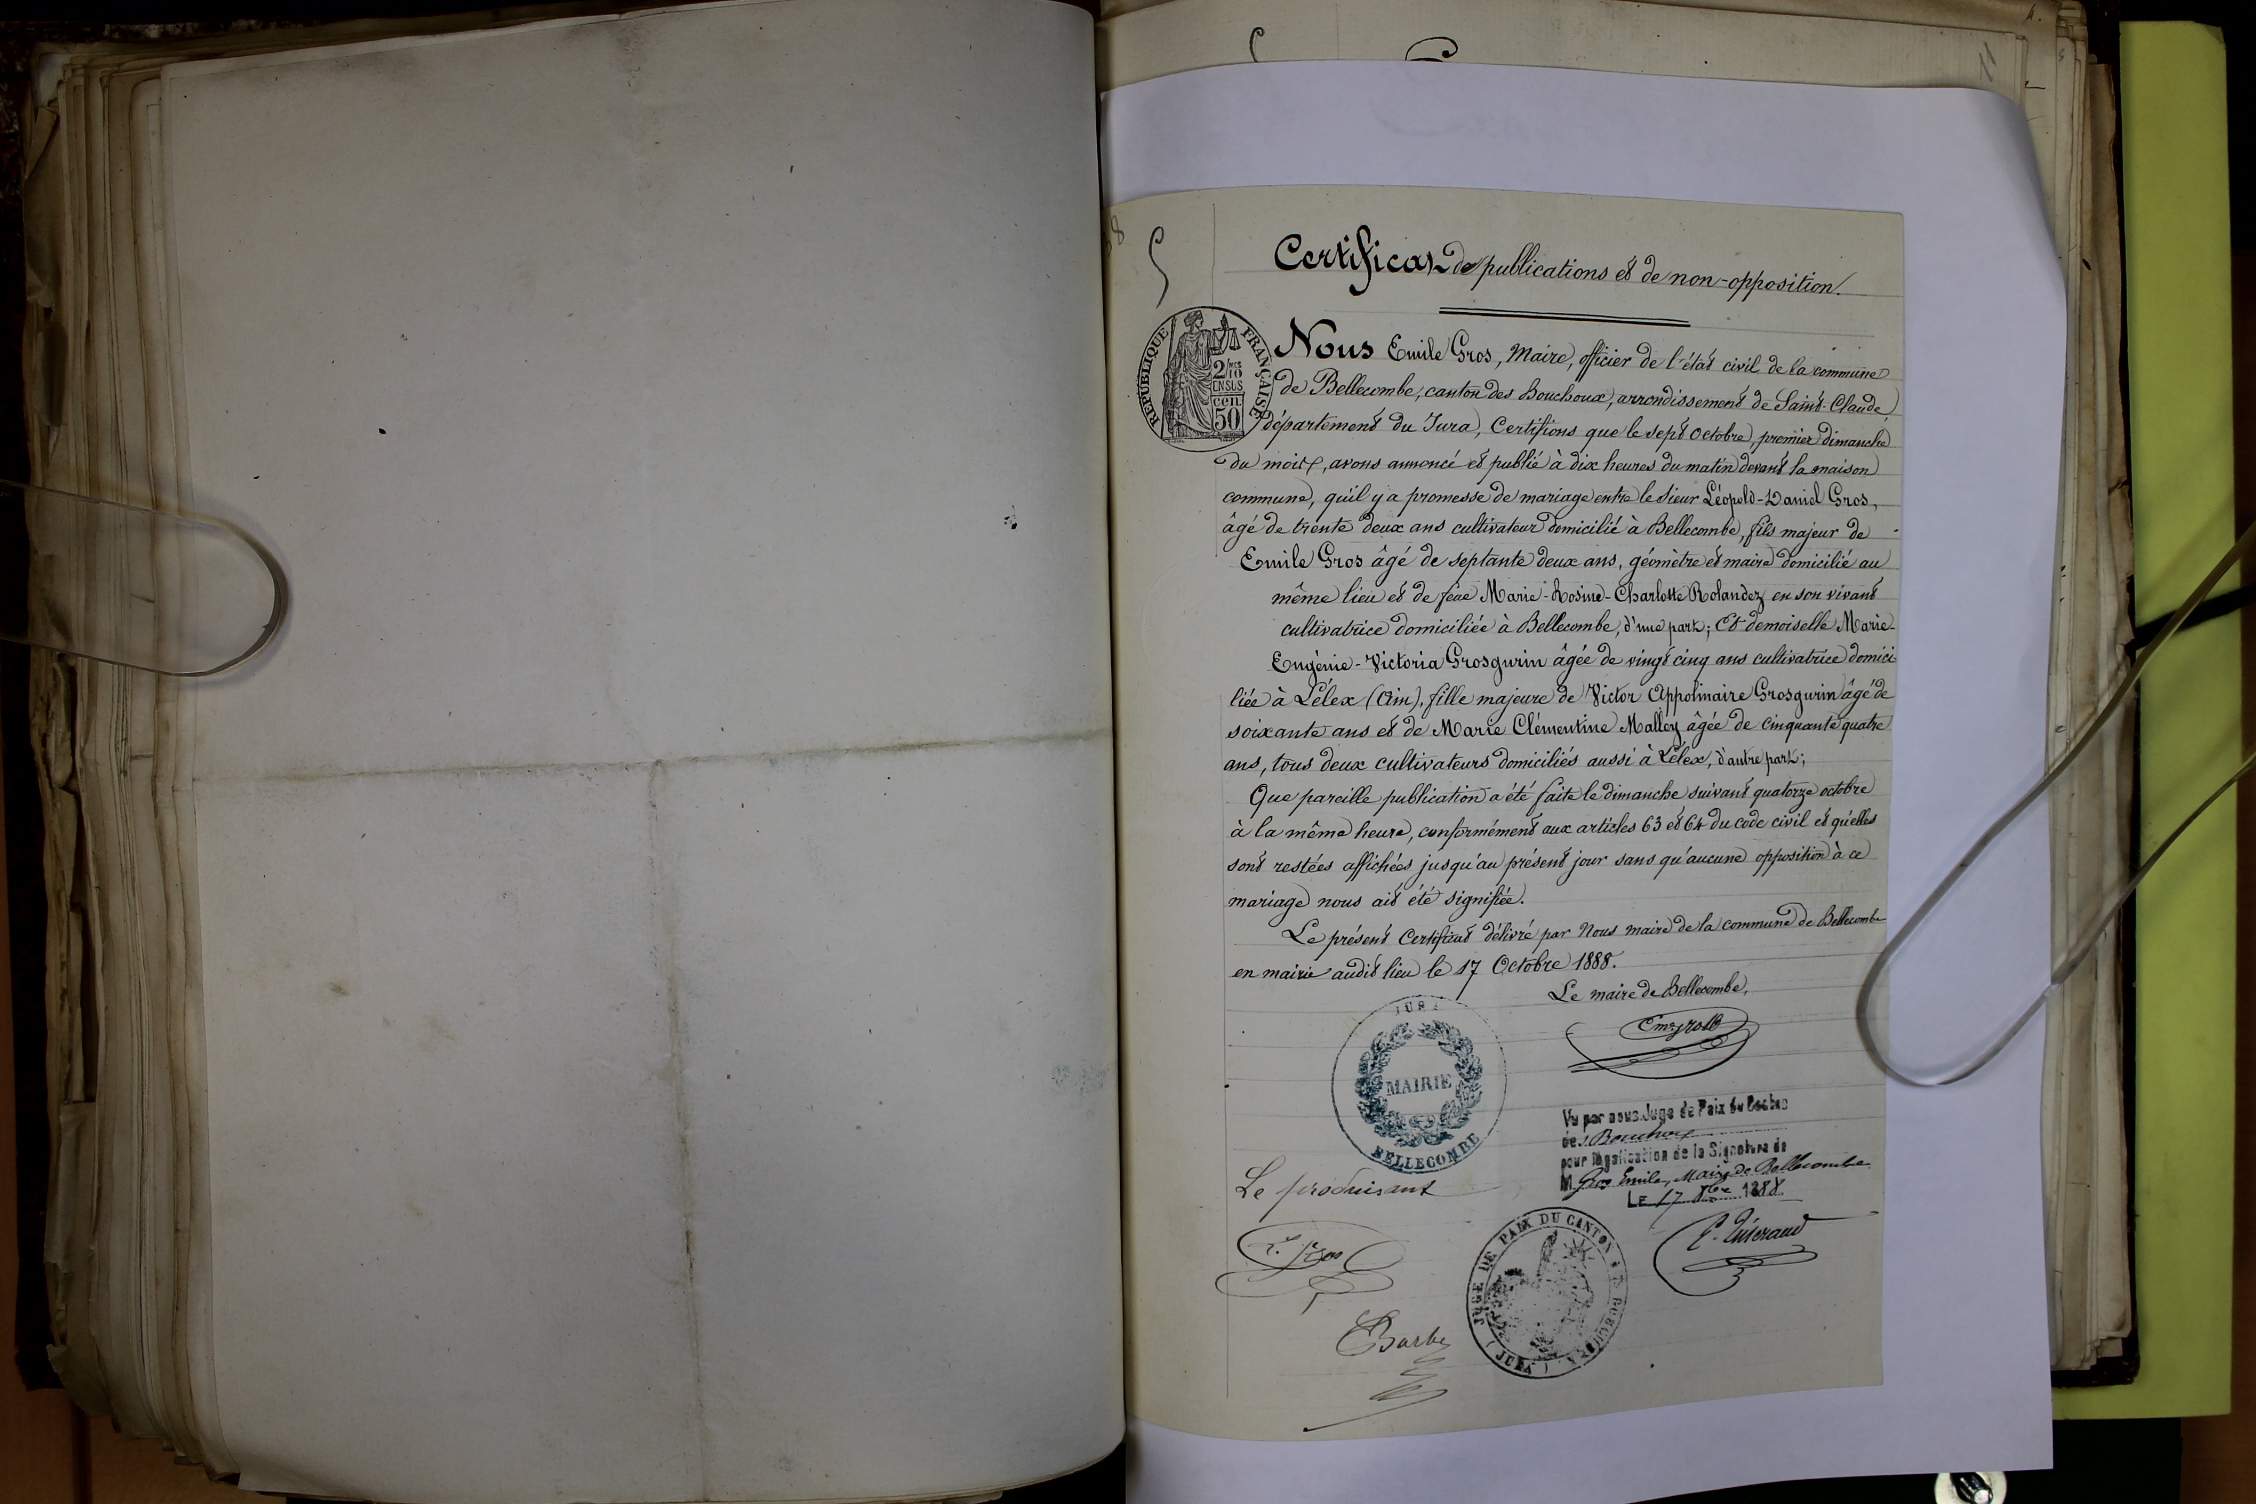 11
5
Certificat de publications et de non-opposition.
RÉPUBLIQUE FRANÇAISE
2/10
EN SUS
50
Nous Emile Gros, Maire, officier de l'état civil de la commune
de Bellecombe, canton des Bouchoux, arrondissement de Saint-Claude,
département du Jura, Certifions que le sept octobre, premier dimanche
du mois, avons annoncé et publié à dix heures du matin devant la maison
commune, qu'il y a promesse de mariage entre le sieur Léopold-Daniel Gros,
âgé de trente deux ans cultivateur domicilié à Bellecombe, fils majeur de
Emile Gros âgé de septante deux ans, géomètre et maire domicilié au
même lieu et de feue Marie-Rosine-Charlotte Rolandez en son vivant
cultivatrice domiciliée à Bellecombe, d'une part; Et demoiselle Marie-
Eugénie-Victoria Grosgurin âgée de vingt cinq ans cultivatrice domici
liée à Lélex (Ain), fille majeure de Victor Appolinaire Grosgurin âgé de
soixante ans et de Marie Clémentine Malley âgée de cinquante quatre
ans, tous deux cultivateurs domiciliés aussi à Lélex, d'autre part;
Que pareille publication a été faite le dimanche suivant quatorze octobre
à la même heure, conformément aux articles 63 et 64 du code civil et qu'elles
sont restées affichées jusqu'au présent jour sans qu'aucune opposition à ce
mariage nous ait été signifiée.
Le présent Certificat délivré par Nous maire de la commune de Bellecombe
en mairie audit lieu le 17 Octobre 1888.
Le maire de Bellecombe,
JURA
MAIRIE
BELLECOMBE
Vu par nous Juge de Paix du Canton
des Bouchoux
pour légalisation de la Signature de
M Gros Emile, Maire de Bellecombe
Le 17 8bre 1888
Le produisant
JUGE DE PAIX DU CANTON DES BOUCHOUX (JURA)
Barbe